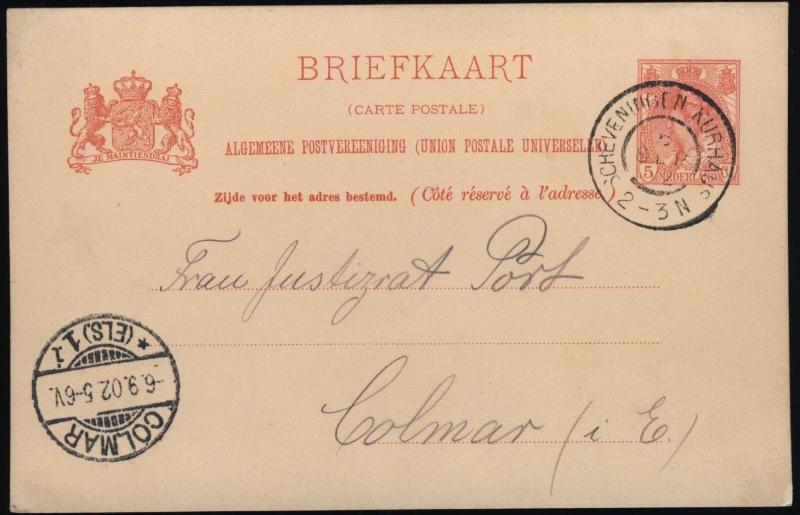 BRIEFKAART
(CARTE POSTALE)
ALGEMEENE POSTVEREENIGING (UNION POSTALE UNIVERSELLE)
Zijde voor het adres bestemd. (Côté réservé à l'adresse)
JE MAINTIENDRAI
5
NEDERLAND
SCHEVENINGEN-KURHAUS
2-3N
Frau Justizrat Port
Colmar (i E.)
* (ELS) 1
-6.9.02.5-6V.
COLMAR